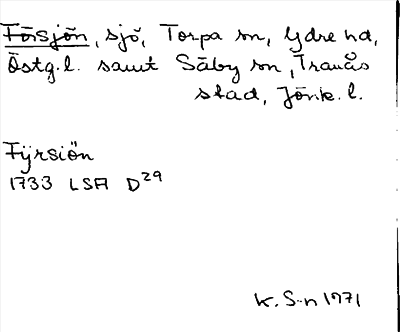 Försjön, sjö, Torpa sn, Ydre hd,
Östg.l. samt Säby sn, Tranås
stad, Jönk. l.
Fÿrsiön
1733 LSA D29
K. S-n 1971